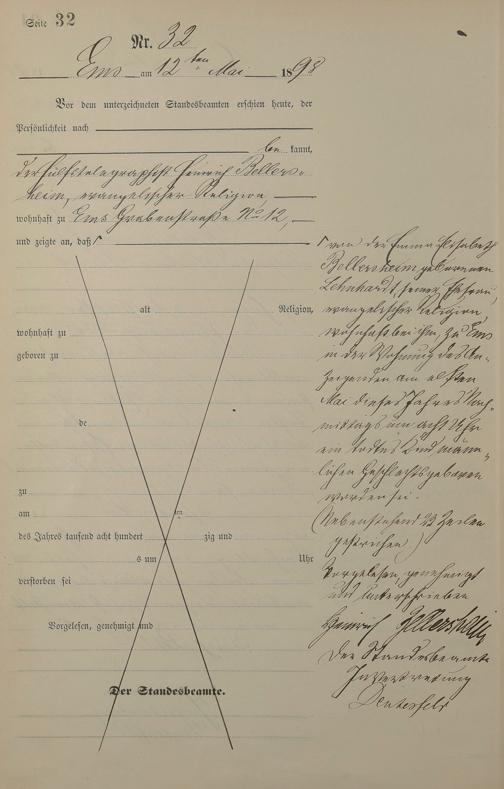 Seite 32
Nr. 32
Ems am 12ten Mai 1898
Vor dem unterzeichneten Standesbeamten erschien heute, der
Persönlichkeit nach
be kannt,
der Hülfstelegraphist Heinrich Bellers-
heim, evangelischer Religion,
wohnhaft zu Ems Grabenstraße No 12,
und zeigte an, daß
alt Religion,
wohnhaft zu
geboren zu
de
zu
am ten
des Jahres tausend acht hundert zig und
s um Uhr
verstorben sei
Vorgelesen, genehmigt und
Der Standesbeamte.
von der Emma Elisabeth
Bellersheim geborenen
Lehnhardt, seiner Ehefrau,
evangelischer Religion,
wohnhaft bei ihm, zu Ems
in der Wohnung des An-
zeigenden am elften
Mai dieses Jahres Nach-
mittags um acht Uhr
ein todtes Kind männ-
lichen Geschlechts geboren
worden sei.
(Nebenstehend 23 Zeilen
gestrichen)
Vorgelesen, genehmigt
und unterschrieben
Heinrich Bellersheim
Der Standesbeamte
In Vertretung